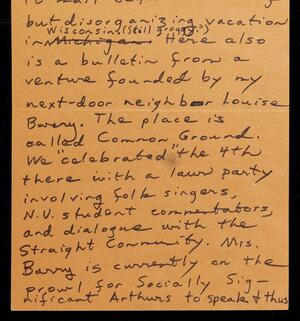 but disorganizing vacation
Wisconsin (Still groggy?)
in Michigan. Here also
is a bulletin from a
venture founded by my
next-door neighbor Louise
Barry. The place is
called Common Ground.
We "celebrated" the 4th
there with a lawn party
involving folk singers,
N.U. student commentators,
and dialogue with the
Straight Community. Mrs.
Barry is currently on the
prowl for Socially Sig-
nificant Arthurs to speak & thus